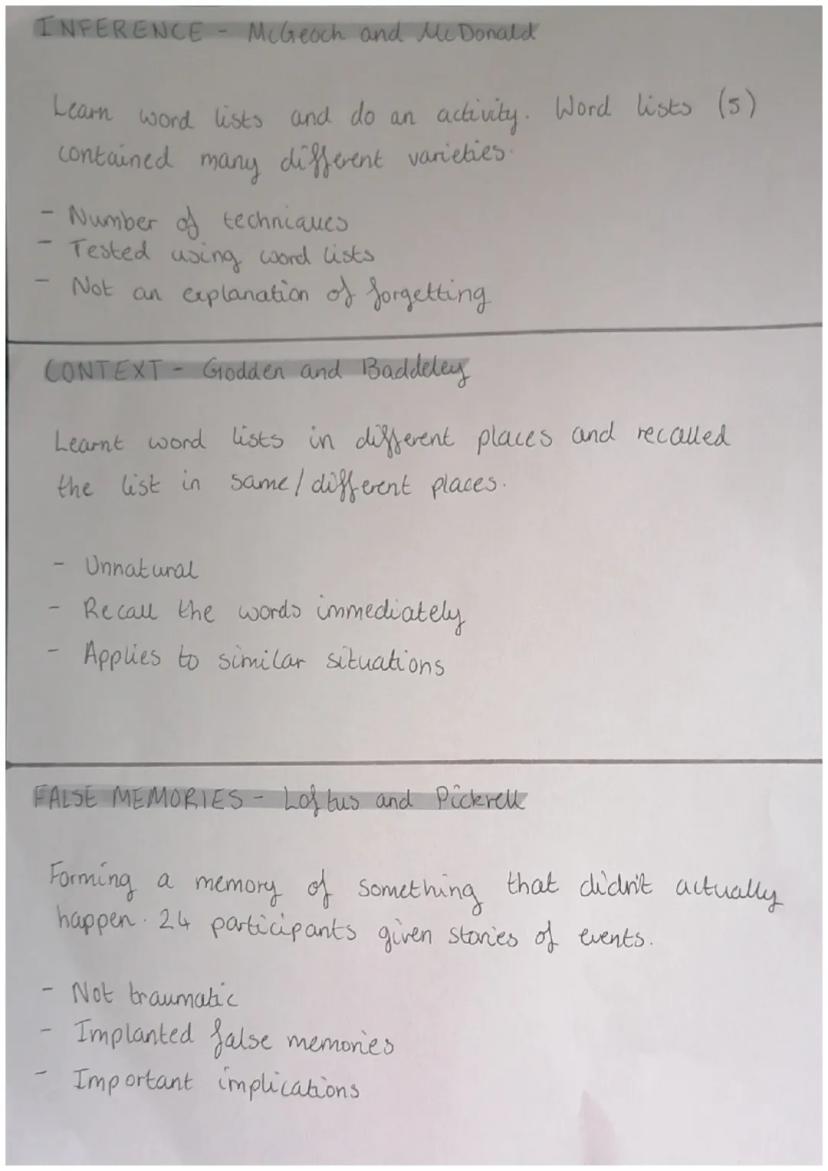 INFERENCE - McGeoch and McDonald
Learn word lists and do an activity. Word lists (5)
contained many different varieties.
- Number of techniques
- Tested using word lists
- Not an explanation of forgetting
CONTEXT - Godden and Baddeley
Learnt word lists in different places and recalled
the list in same/different places.
- Unnatural
- Recall the words immediately
- Applies to similar situations
FALSE MEMORIES - Loftus and Pickrell
Forming a memory of something that didn't actually
happen. 24 participants given stories of events.
- Not traumatic
- Implanted false memories
- Important implications